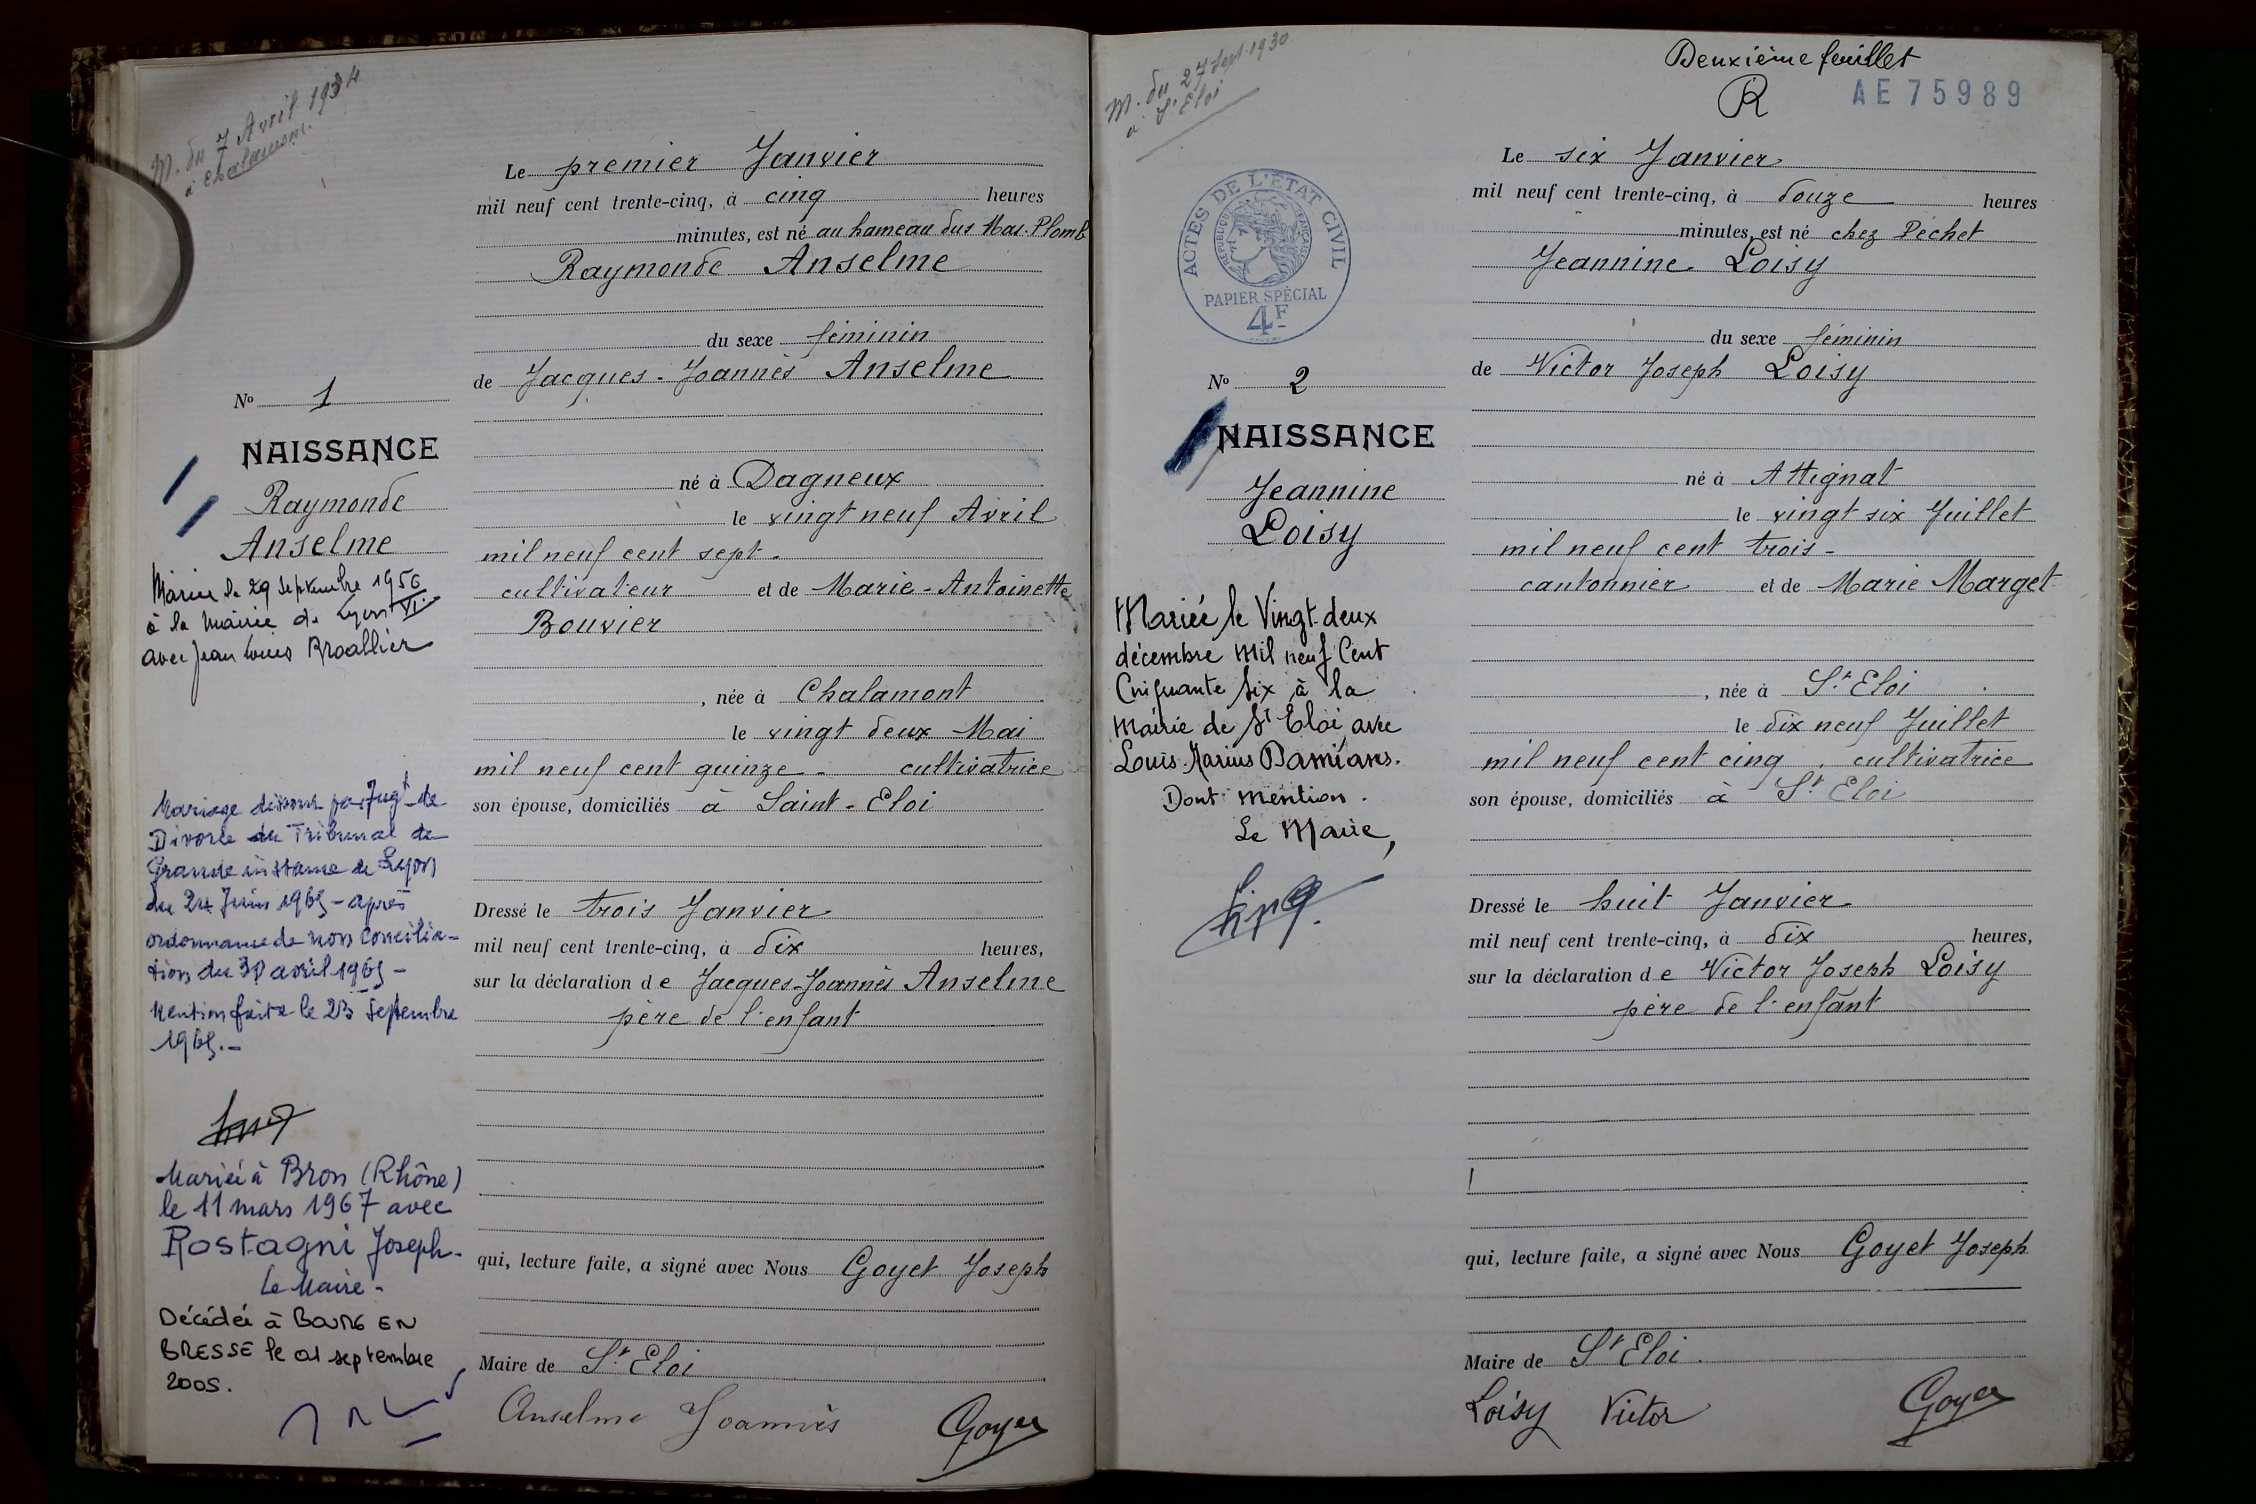 M. du 7 Avril 1934
à Chalamont.
Le premier Janvier
mil neuf cent trente-cinq, à cinq heures
minutes, est né au hameau dus Mas. Plomb
Raymonde Anselme
du sexe féminin
de Jacques-Joannès Anselme
né à Dagneux
le vingt neuf Avril
mil neuf cent sept.
cultivateur et de Marie-Antoinette
Bouvier
, née à Chalamont
le vingt deux Mai
mil neuf cent quinze. cultivatrice
son épouse, domiciliés à Saint-Eloi
Dressé le trois Janvier
mil neuf cent trente-cinq, à dix heures,
sur la déclaration de Jacques-Joannès Anselme
père de l'enfant
qui, lecture faite, a signé avec Nous Goyet Joseph
Maire de St Eloi
Anselme Joannès Goyet
No 1
NAISSANCE
Raymonde
Anselme
Mariée le 29 septembre 1956
à la Mairie de Lyon VI
avec Jean Louis Broallier
Mariage dissous par Jugt de
Divorce du Tribunal de
Grande instance de Lyon
du 24 Juin 1965 - après
ordonnance de non concilia-
tion du 30 avril 1965 -
Mention faite le 23 Septembre
1965.-
Mariée à Bron (Rhône)
le 11 mars 1967 avec
Rostagni Joseph-
Le Maire-
Décédée à BOURG EN
BRESSE le 01 septembre
2005.
M. du 27 Sept 1930
à St Eloi
Deuxième feuillet
R AE75989
ACTES DE L'ÉTAT CIVIL
RÉPUBLIQUE FRANÇAISE
PAPIER SPÉCIAL
4F
Le six Janvier
mil neuf cent trente-cinq, à douze heures
minutes, est né chez Péchet
Jeannine Loisy
du sexe féminin
de Victor Joseph Loisy
né à Attignat
le vingt six Juillet
mil neuf cent trois-
cantonnier et de Marie Marget
, née à St Eloi
le dix neuf Juillet
mil neuf cent cinq, cultivatrice
son épouse, domiciliés à St Eloi
Dressé le huit Janvier
mil neuf cent trente-cinq, à dix heures,
sur la déclaration de Victor Joseph Loisy
père de l'enfant
qui, lecture faite, a signé avec Nous Goyet Joseph
Maire de St Eloi.
Loisy Victor Goyet
No 2
NAISSANCE
Jeannine
Loisy
Mariée le Vingt-deux
décembre Mil neuf Cent
Cinquante Six à la
Mairie de St Eloi avec
Louis-Marius Damians.
Dont mention.
Le Maire,